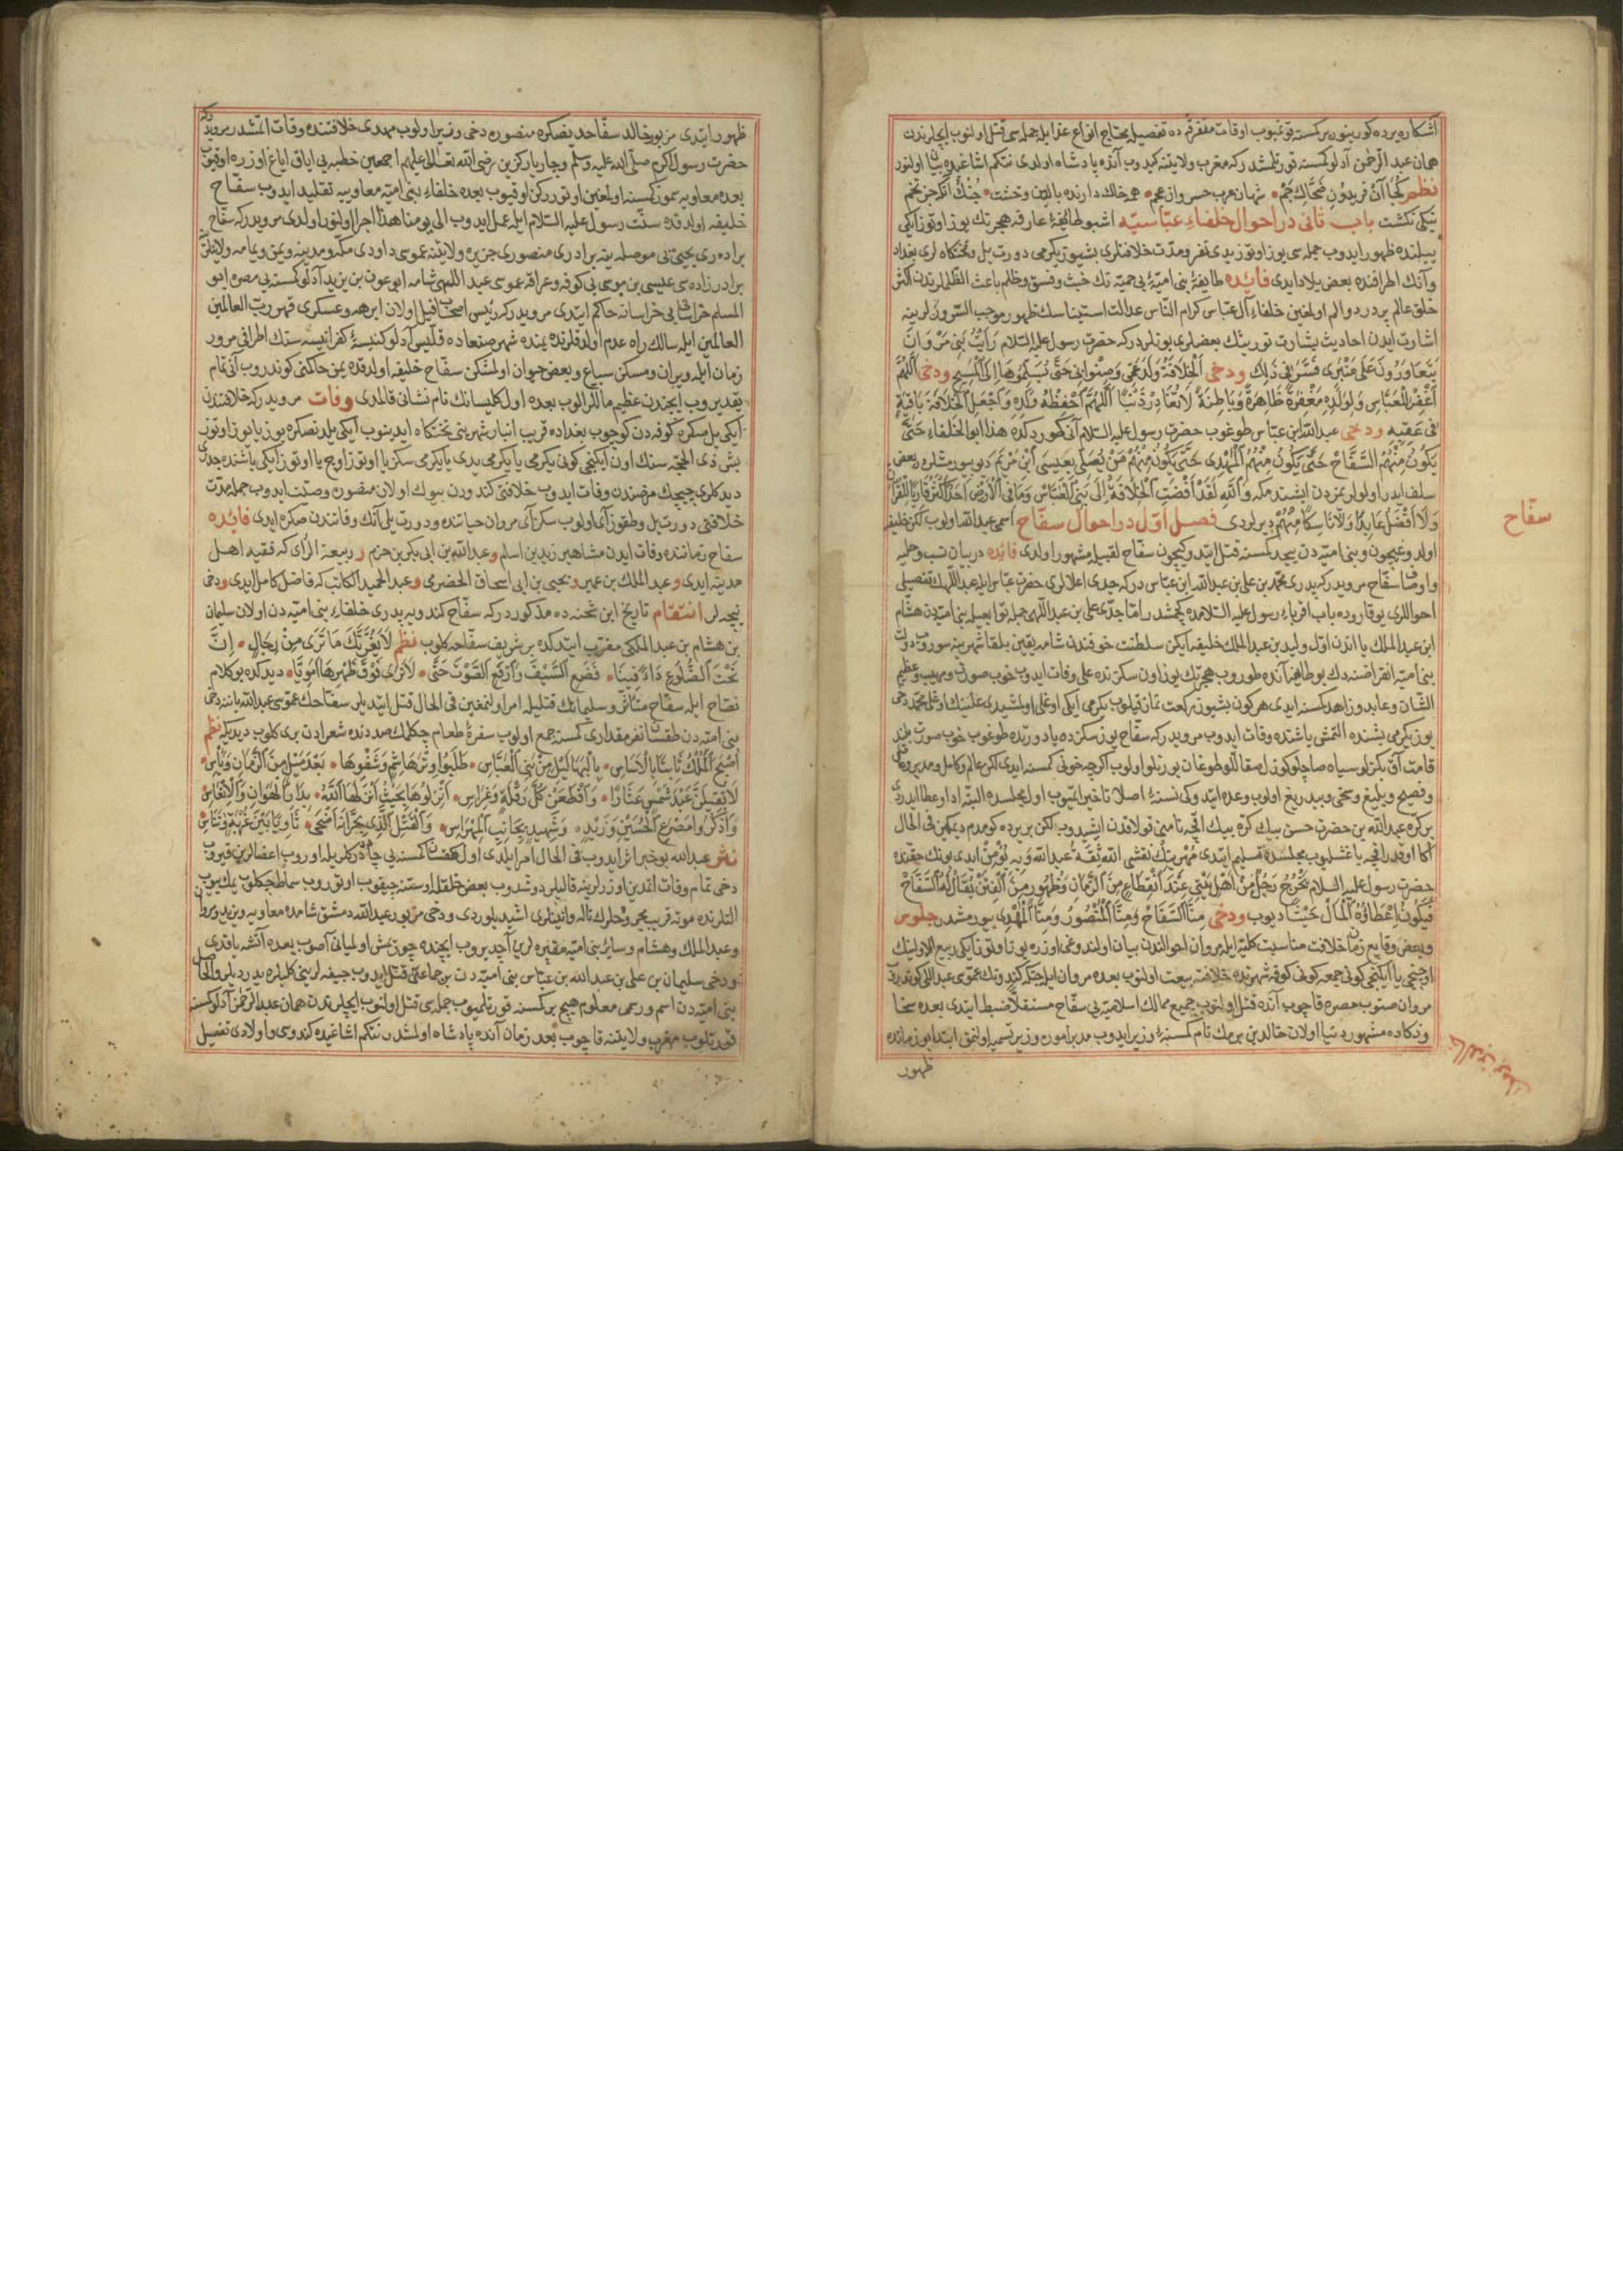 آشکاره یرده کورینور برکسنه قونمیوب اوقات متفرقه ده تفصیله محتاج انواع عذابله جمله سی قتل اولنوب ایچلرندن
همان عبد الرحمن آدلو کمسنه قورتلمشدر که مغرب ولایتنه کیدوب آنده پادشاه اولدی نتکم اشاغیده بیان اولنور
نظم کجا آن فریدون ضحاک جم شهان عرب خسروان عجم همه خاک دارند بالین وخشت خنک آنکه جز تخم
نیکی نکشت باب ثانی در احوال خلفاء عباسیه اشبو طائفهٔ عارفه هجرتک یوز اوتوز ایکی
ییلنده ظهور ایدوب جمله سی یوز اوتوز یدی نفر ومدت خلافتلری بشیوز یکرمی دورت ییل وتختکاه لری بغداد
وآنک اطرافنده بعض بلاد ایدی فائده طایفهٔ بنی امیهٔ بی حمیتنک خبث وفسق وظلم باعث الظلملرندن اکثر
خلق عالم پر درد والم اولمغین خلفاء آل عباس کرام الناس عدالت استیناسک ظهور موجب السرورلرینه
اشارت ایدن احادیث بشارت توریثک بعضلری بونلردر که حضرت رسول علیه السلام رایت بنی مروان
یتعاورون علی منبری فسرنی ذلک ودخی الخلافة ولد عمی وصنو ابی حتی یسلموها الی المسیح ودخی اللهم
اغفر للعباس ولولده مغفرة ظاهرة وباطنة لا تغادر ذنبا اللهم احفظه ولده واجعل الخلافة باقیة
فی عقبه ودخی عبد الله ابن عباس طوغوب حضرت رسول علیه السلام آنی کوردکده هذا ابو الخلفاء حتی
یکون منهم السفاح حتی یکون منهم المهدی حتی یکون منهم من یصلی بعیسی ابن مریم دیو بیورمشلردر بعض
سلف ایدر اولولریمزدن ایشتدمکه والله لقد افضت الخلافة الی بنی العباس وما فی الارض احد اکثر قاریا للقرآن
ولا افضل عابدا ولا ناسکا منهم دیرلردی فصل اول در احوال سفاح اسمی عبد الله اولوب لکن خلیفه
اولدوغیچون وبنی امیه دن بیحد کمسنه قتل ایتدوکیچون سفاح لقبیله مشهور اولدی فائده در بیان نسب وحلیه
واوصاف سفاح مرویدر که پدری محمد بن علی بن عبد الله ابن عباس در که جدی اعلالری حضرت عباس ایله عبد اللهک تفصیلی
احواللری یوقاروده باب اقرباء رسول علیه السلامده کچمشدر اما جدی علی بن عبد اللهی
ابن عبد الملک یا اندن اول ولید بن عبد الملک خلیفه ایکن سلطنت خوفندن شامه یقین بلقا شهرینه سوروب
بنی امیه انقراضنه دک بو طایفه آنده طوروب هجرتک یوز اون سکزنده علی وفات ایدوب خوب صورت ومهیب وعظیم
الشان وعابد وزاهد کمسنه ایدی هر کون بشیوز رکعت نماز قیلوب یکرمی ایکی اوغلی اولمشیدی علینک اوغلی محمد دخی
یوز یکرمی بشنده التمش یاشنده وفات ایدوب مرویدر که سفاح یوز سکزده یا دوردنده طوغوب خوب صورت بلند
قامت آق بکزلو سیاه صاچلو کوزل صقاللو طوغان بورنلو اولوب اکرچه خونی کمسنه ایدی لکن عالم وکامل ومدبر وعاقل
وفصیح وبلیغ وسخی وبیدریغ اولوب وعده ایتدوکی نسنهٔ اصلا تاخیر ایتمیوب اول مجلسده البته ادا وعطا ایدردی
بر کره عبد الله بن حضرت حسن بیک کره بیک اقچه نامنی قولاقدن ایشیدوب لکن بر یرده کورمدم دیمکین فی الحال
اکا اوقدر اقچه باغشلیوب مجلسده تسلیم ایتدی مهرینک نقشی الله ثقة عبد الله وبه یؤمن ایدی بونک حقنده
حضرت رسول علیه السلام یخرج رجل من اهل بیتی عند انقطاع من الزمان وظهور من الفتن یقال له السفاح
فیکون اعطاؤه المال حثیا دیوب ودخی منا السفاح ومنا المنصور ومنا المهدی بیورمشدر جلوس
وبعض وقایع زمان خلافت مناسبت کلیه ایله مروان احوالندن بیان اولندوغی اوزره یوز اوتوز ایکی ربیع الاولینک
اوچنجی یا ایکنجی کونی جمعه کونی کوفه شهرنده خلافته بیعت اولنوب بعده مروان ایله جنکه کندونک عموسی عبد اللهی کوندروب
مروان صنوب مصره قاچوب آنده قتل اولنوب جمیع ممالک اسلامیه یی سفاح مستقلا ضبط ایتدی بعده سخا
وذکاده مشهور دنیا اولان خالد بن برمک نام کمسنهٔ وزیر ایدوب مدبر امور وزیر تسمیه اولنمق ابتدا بو زمانده
ظهور
سفاح
خالد بن برمک
ظهور ایتدی مزبور خالد سفاحدنصکره منصوره دخی وزیر اولوب مهدی خلافتنده وفات ایتمشدر مرویدر که
حضرت رسول اکرم صلی الله علیه وسلم وچار یار کزین رضی الله تعالی علیهم اجمعین خطبه یی ایاق ایاغ اوزره اوقیوب
بعده معاویه سمورکسنه اولمغین اوتوررکن اوقیوب بعده خلفاء بنی امیه معاویه یه تقلید ایدوب سفاح
خلیفه اولدقده سنت رسول علیه السلام ایله عمل ایدوب الی یومنا هذا اجرا اولنور اولدی مرویدر که سفاح
برادری یحیی یی موصله یته برادری منصوری جزیره ولایتنه عموسی داودی مکه ومدینه ویمن ویمامه ولایتلرینه
برادر زاده سی عیسی بن موسی یی کوفه وعراقه عموسی عبد اللهی شامه ابو عون بن یزید آدلو کمسنه یی مصره ابو
المسلم خراسانی یی خراسانه حاکم ایتدی مرویدر که رئیس اصحاب فیل اولان ابرهه وعسکری قهر رب العالمین
العالمین ایله سالک راه عدم اولدقلرنده یمنده شهر صنعاده قلیس آدلو کنیسهٔ کفر انیسه سنک اطرافی مرور
زمان ایله ویران ومسکن سباع وبعض حیوان اولمشکن سفاح خلیفه اولدقده یمن حاکمنی کوندروب آنی تمام
یقدیروب ایچندن عظیم ماللر الوب بعده اول کلیسانک نام نشانی قالمدی وفات مرویدر که خلافتندن
ایکی ییل صکره کوفه دن کوچوب بغداده قریب انبار شهرینی تختکاه ایدینوب ایکی ییلدنصکره یوز یا یوز اوتوز
بش ذی الحجه سنک اون ایکنجی کونی یکرمی یا یکرمی یدی یا یکرمی سکز یا اوتوز اوچ یا اوتوز ایکی یاشنده جدری
دیدکلری چیچک مرضندن وفات ایدوب خلافتی کندودن بیوک اولان منصوره وصیت ایدوب جمله مدت
خلافتی دورت ییل وطقوز آی اولوب سکز آی مروان حیاتنده ودورت ییلی آنک وفاتندن صکره ایدی فائده
سفاح زماننده وفات ایدن مشاهیر زید بن اسلم وعبد الله بن ابی بکر بن حزم و ربیعة الرای که فقیه اهل
مدینه ایدی وعبد الملک بن عمیر ویحیی بن ابی اسحاق الحضرمی وعبد الحمید الکاتب که فاضل کامل ایدی ودخی
نیچه لر انتقام تاریخ ابن شحنه ده مذکوردر که سفاح کندویه پدری خلفاء بنی امیه دن اولان سلیمان
بن هشام بن عبد الملکی مقرب ایتدکده بر شریف سفاحه کلوب نظم لا یغرنک ما تری من رجال ان
تحت الضلوع داء دفینا فضع السیف وارفع الصوت حتی لا تری فوق ظهرها امویا دیدکده بو کلام
نصاح ایله سفاح متأثر وسلیمانک قتلیله امر اولنمغین فی الحال قتل ایتدیلر سفاحک عموسی عبد الله یاننده دخی
بنی امیه دن طقسان نفر مقداری کمسنه جمع اولوب سفرهٔ طعام چکلمک صددنده شعرادن بری کلوب دیدیکه نظم
اصبح الملک ثابت الاساس بالبهالیل من بنی العباس طلبوا وتر هاشم وشفوها بعد میل من الزمان ویأس
لا تقیلن عبد شمس عثارا واقطعن کل رقلة وغراس انزلوها بحیث انزلها الله بدار الهوان والاتعاس
واذکروا مصرع الحسین وزید وشهید بجانب المهراس والقتیل الذی بحران اضحی ثاویا بین غربة وتناس
نثر عبد الله بو خبر اثر ایدوب فی الحال امر ایلدی اول طقسان کمسنه یی چادر دکلریله اوروب اعضالرین قیروب
دخی تمام وفات اتمدین اوزرلرینه قالیلر دوشدوب بعض خلقله اوستنه چیقوب اوتوروب سماط چکلوب یمک ییوب
التلرنده موته قریب مجروحلرک ناله وانینلری اشیدیلوردی ودخی مزبور عبد الله دمشق شامده معاویه ویزید ومروان
وعبد الملک وهشام وسائر بنی امیه مقبره لرین آچدیروب ایچنده چورمش اولمیانی آصوب بعده آتشه یاقدی
ودخی سلیمان بن علی بن عبد الله بن عباس بنی امیه دن بر جماعتی قتل ایدوب جیفه لرینی کلبلره یدردیلر والحاصل
بنی امیه دن اسم ورسمی معلوم هیچ بر کمسنه قورتلمیوب جمله سی قتل اولنوب ایچلرندن همان عبد الرحمن آدلو کمسنه
قورتلوب مغرب ولایتنه قاچوب بعد زمان آنده پادشاه اولمشدر نتکم اشاغیده کندوسی واولادی تفصیل